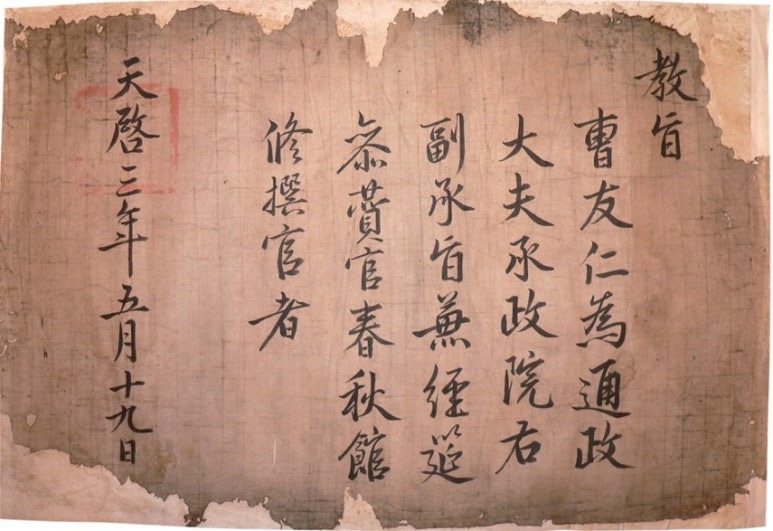 教旨
曺友仁為通政
大夫承政院右
副承旨兼經筵
叅賛官春秋館
修撰官者
天啓三年五月十九日